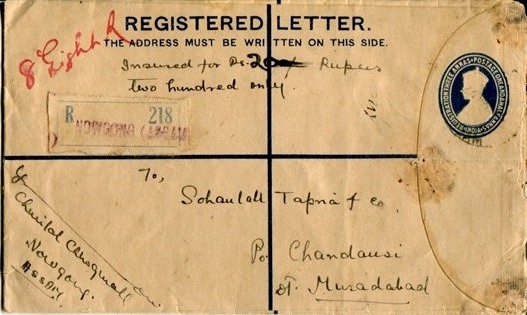 REGISTERED LETTER.
THE ADDRESS MUST BE WRITTEN ON THIS SIDE.
8 Eight R
Insured for Rs. 200/- Rupees
two hundred only.
R 218
NOWGONG (ASSAM
REGISTRATION THREE ANNAS • POSTAGE ONE AND
INDIA
To,
Sohanlall Tapria & Co.
Po. Chandausi
dt. Muradabad
Nowgong.
Assam